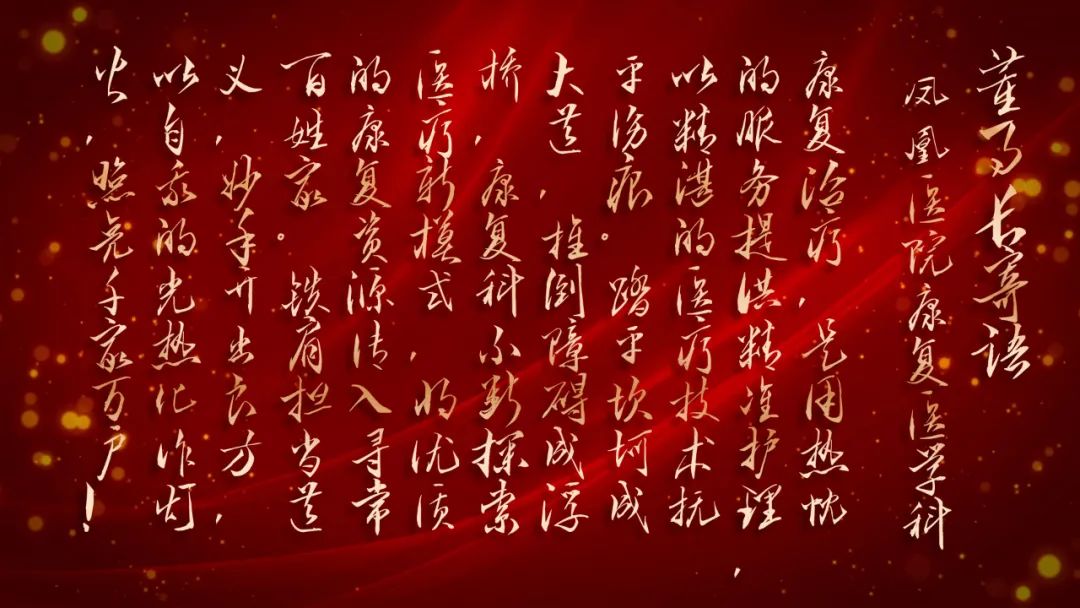 董事长寄语
凤凰医院康复医学科
康复治疗，是用热忱
的服务提供精准护理，
以精湛的医疗技术抚
平伤痕。踏平坎坷成
大道，推倒障碍成浮
桥，康复科不断探索
医疗新模式，将优质
的康复资源传入寻常
百姓家。铁肩担当道
义，妙手开出良方，
以自我的光热化作灯
火，照亮千家万户！